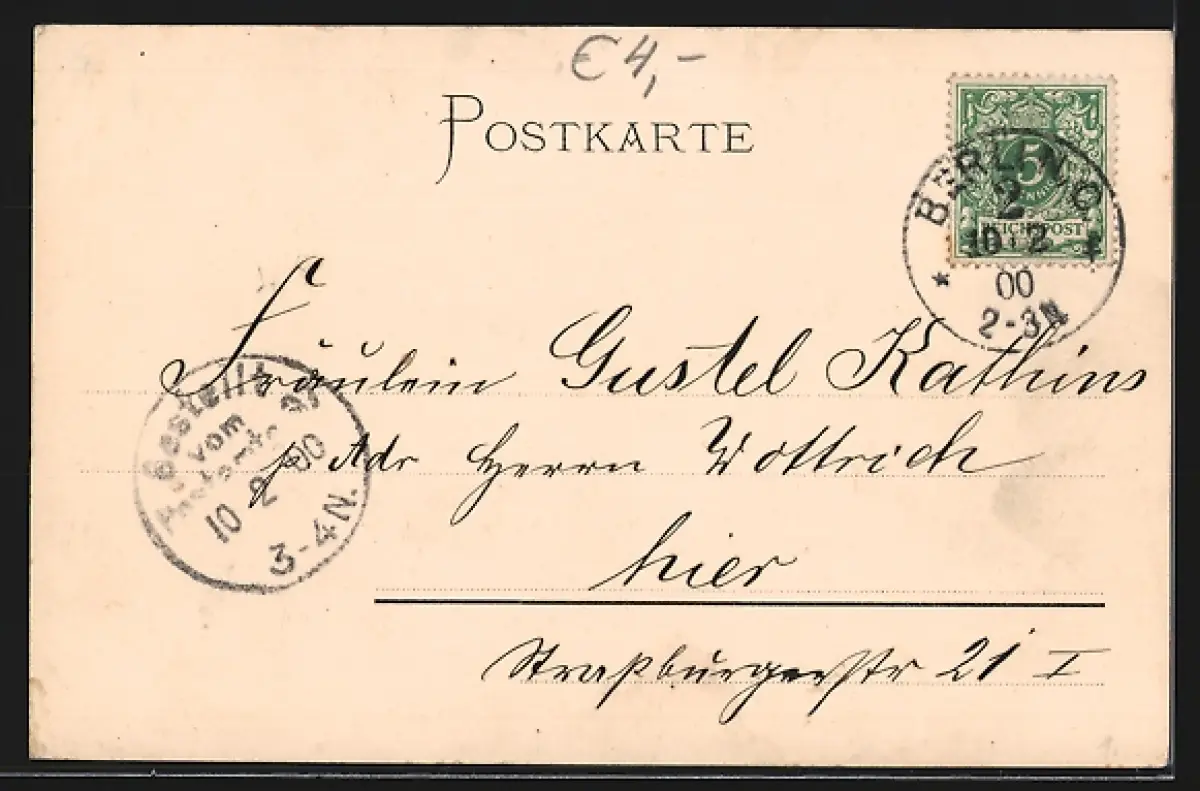 €4,-
POSTKARTE
5
REICHSPOST
BERLIN, C
2
10 2
00
2-3N
Fräulein Gustel Kathins
p Adr Herrn Wottrich
hier
Straßburgerstr 21 I
Bestellt
vom
Postamte
10 2 00
3-4N.